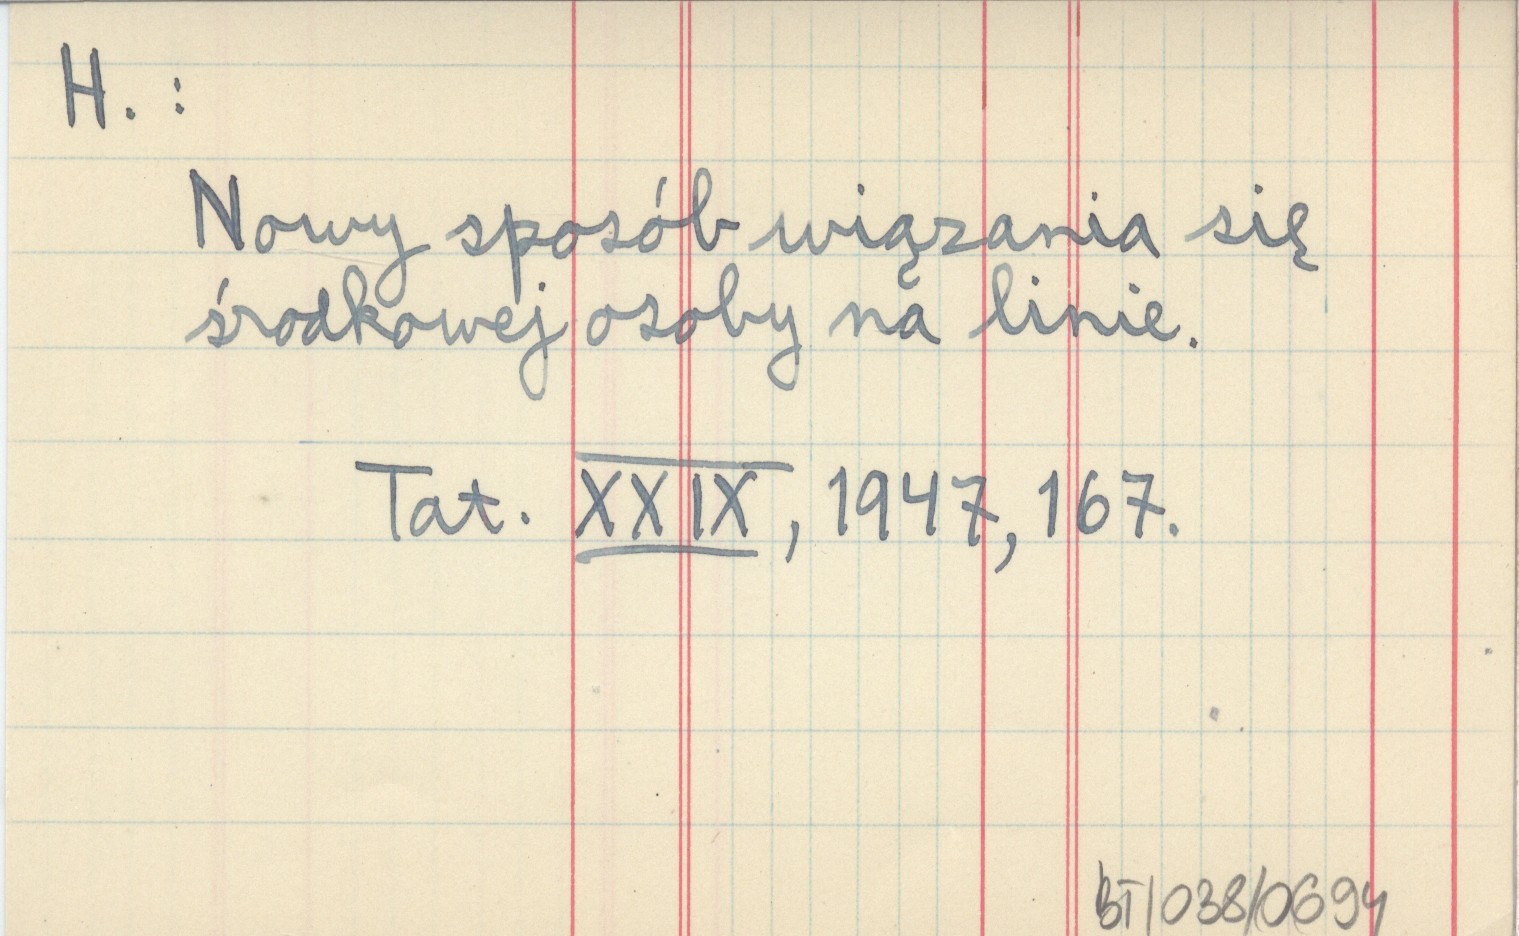 H. :
Nowy sposób wiązania się
środkowej osoby na linie.
Tat. XXIX, 1947, 167.
BT/038/0694